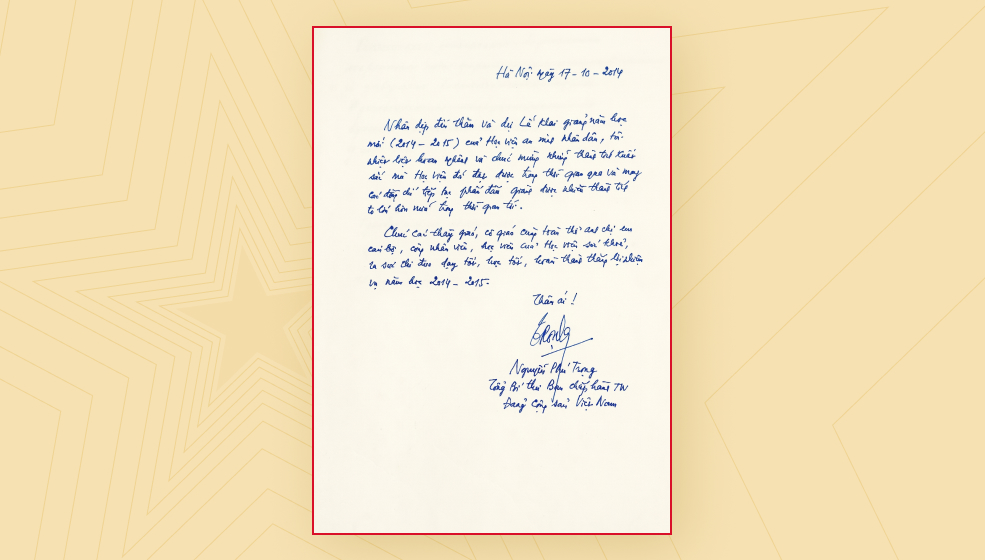 Hà Nội ngày 17 - 10 - 2014
Nhân dịp đến thăm và dự Lễ khai giảng năm học
mới (2014 - 2015) của Học viện an ninh nhân dân, tôi
nhiệt liệt hoan nghênh và chúc mừng những thành tích xuất
sắc mà Học viện đã đạt được trong thời gian qua và mong
các đồng chí tiếp tục phấn đấu giành được nhiều thành tích
to lớn hơn nữa trong thời gian tới.
Chúc các thầy giáo, cô giáo cùng toàn thể anh chị em
cán bộ, công nhân viên, học viên của Học viện sức khoẻ,
ra sức thi đua dạy tốt, học tốt, hoàn thành thắng lợi nhiệm
vụ năm học 2014 - 2015.
Thân ái !
Trọng
Nguyễn Phú Trọng
Tổng Bí thư Ban chấp hành TW
Đảng Cộng sản Việt Nam